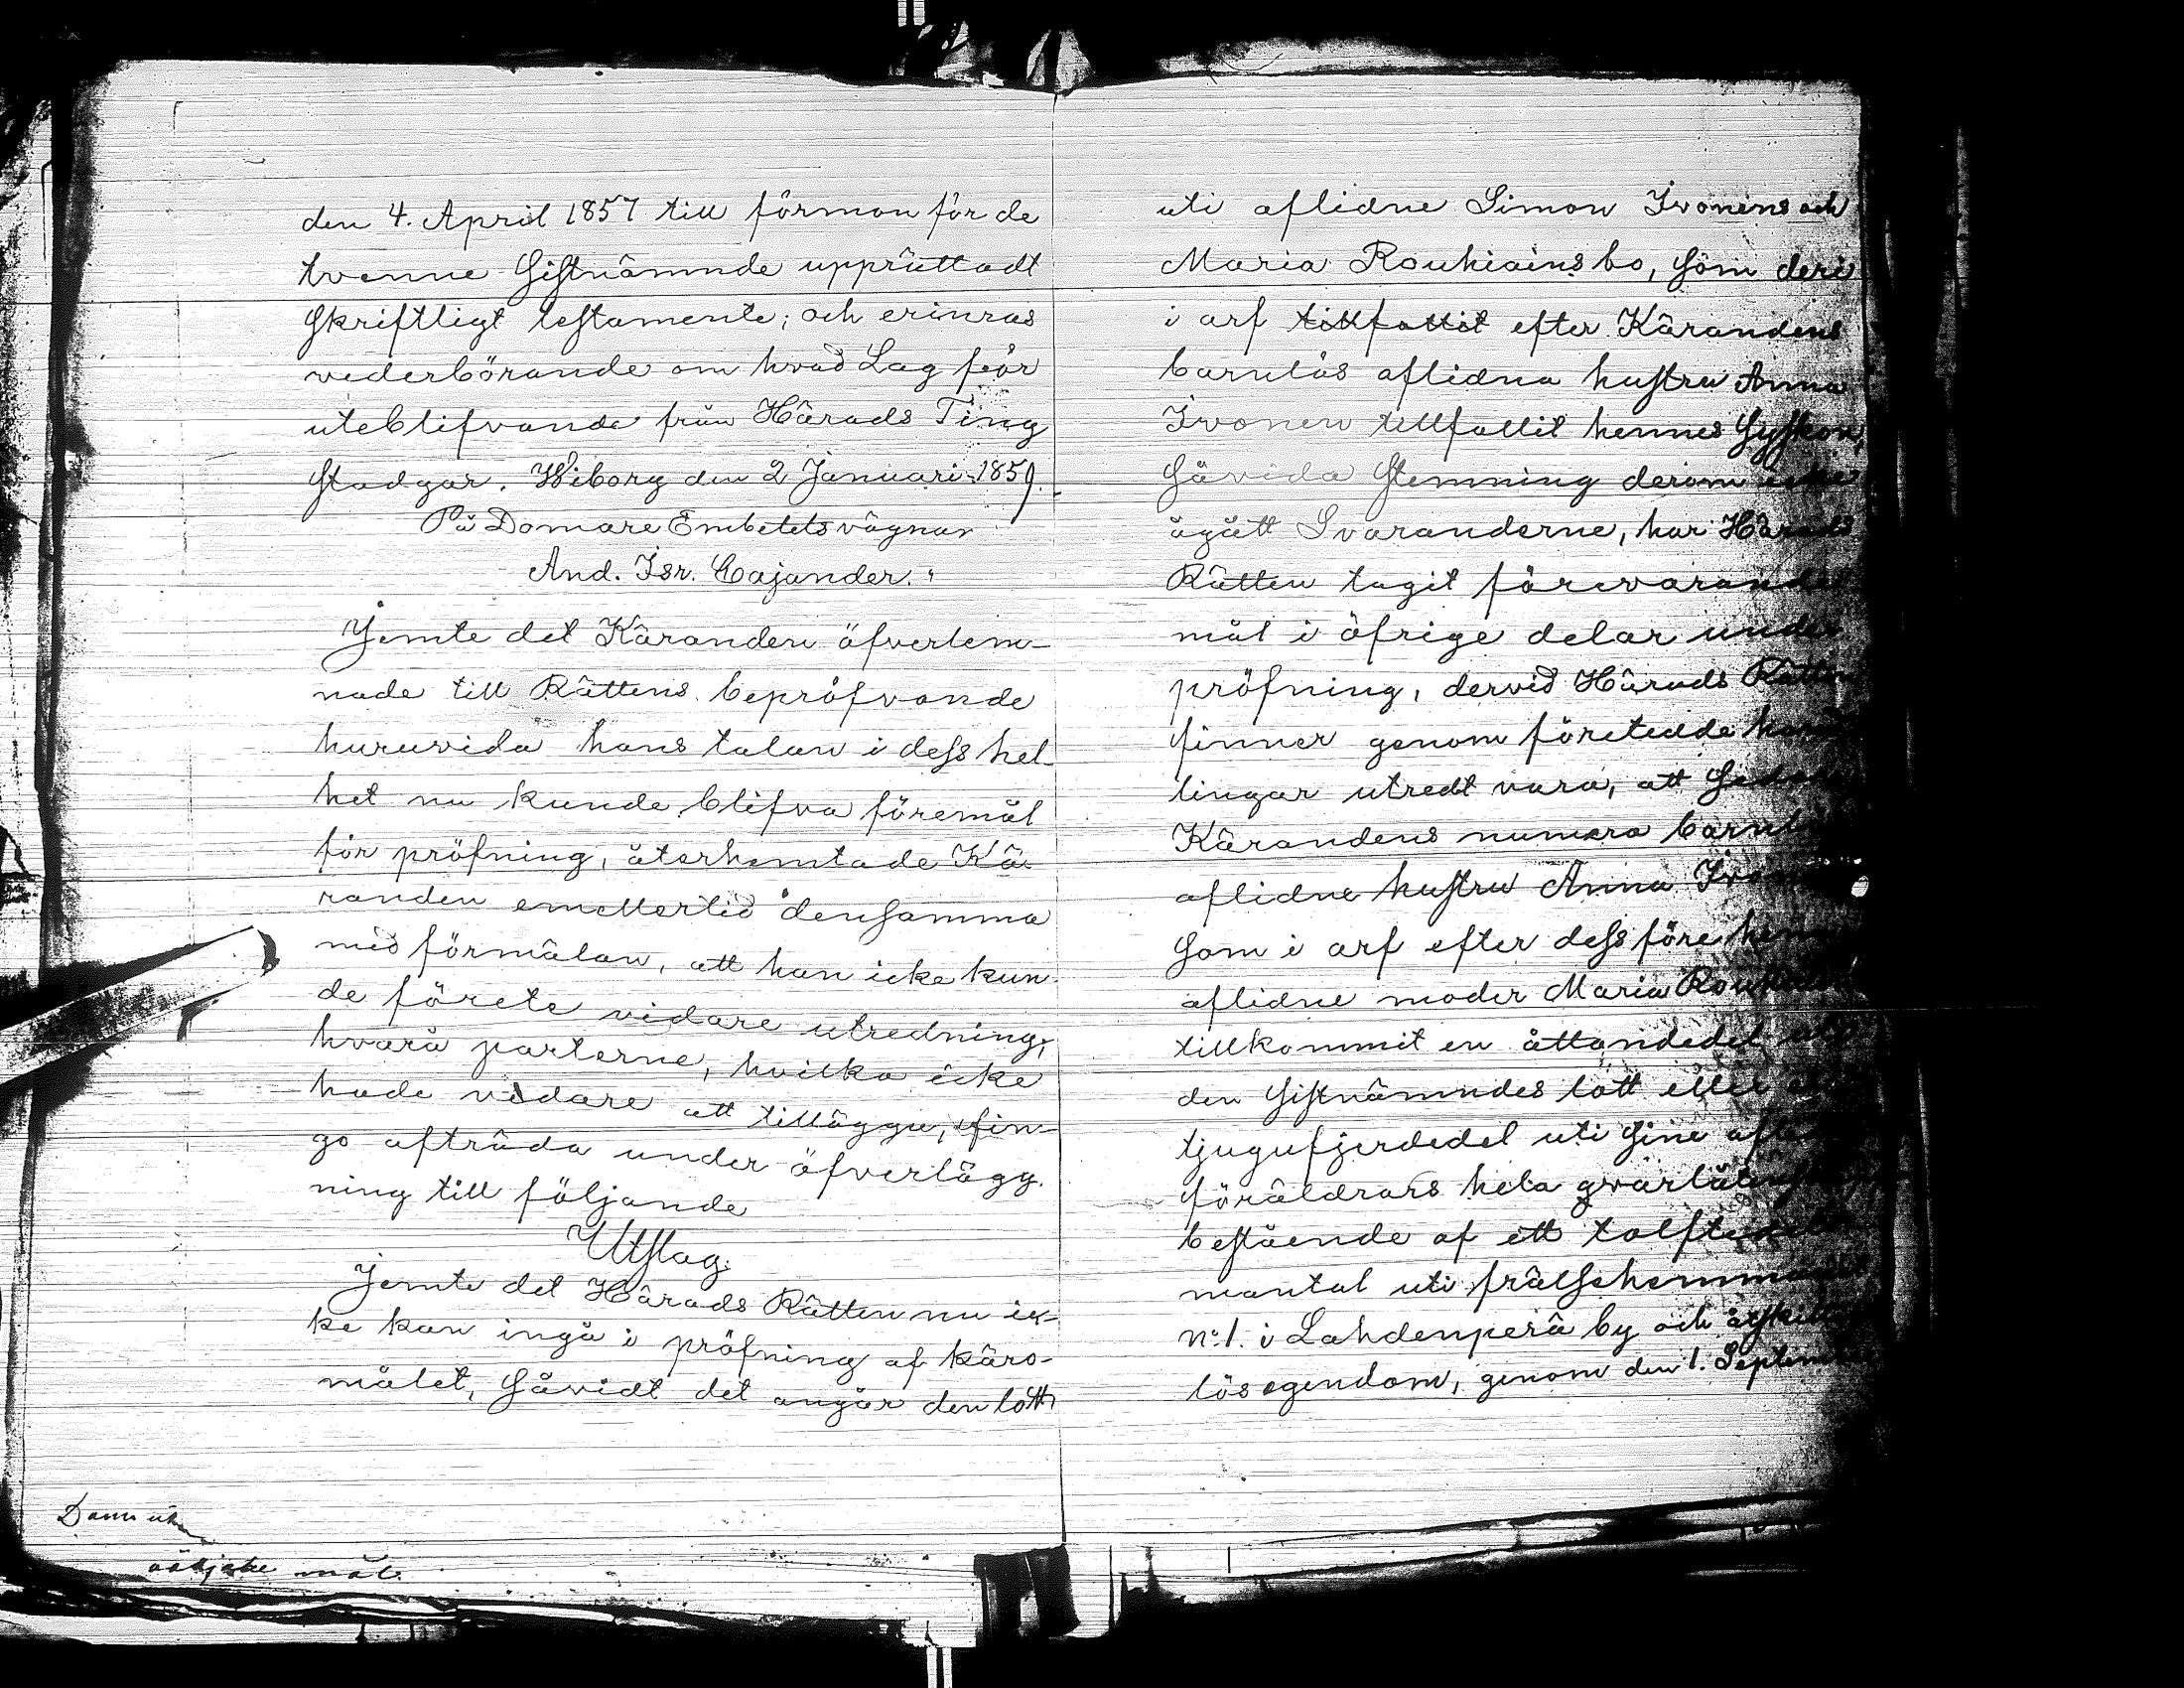 den 4. April 1857 till förmon för de
tvenne sistnämnde upprättadt
skriftligt testamente; och erinras
vederbörande om hvad Lag för
uteblifvande från Härads Ting
stadgar. Wiborg den 2 Januari 1859.
På Domare Embetets vägnar
And. Isr. Cajander."
Jemte det Käranden öfverlem-
nade till Rättens bepröfvande
huruvida hans talan i dess hel-
het nu kunde blifva föremål
för pröfning, återhemtade Kä-
randen emellertid densamma
med förmälan, att han icke kun-
de förete vidare utredning;
hvarå parterne, hvilka icke
hade vidare att tillägga, fin-
go afträda under öfverlägg-
ning till följande
Utslag.
Jemte det Härads Rätten nu ic-
ke kan ingå i pröfning af käro-
målet, såvidt det angår den lott
mål
uti aflidne Simon Ivonens och
Maria Rouhiains bo, som deri
i arf tillfallit efter Kärandens
barnlös aflidna hustru Anna
Ivonen tillfallit hennes syskon,
såvida stemning derom icke
ågått Svaranderne, har Härads
Rätten tagit förevarande
mål i öfrige delar under
pröfning, dervid Härads Rätten
finner genom företedda hand
lingar utredt vara, att sedan
Kärandens numera barnlös
aflidne hustru Anna Ivonen
som i arf efter dess före henne
aflidne moder Maria Rouhiain
tillkommit en åttondedel uti
den sistnämndes lott eller en
tjugufjerdedel uti sine aflidne
föräldrars hela qvarlåtenskap
bestående af ett tolftedels
mantal uti frälsehemmanet
N:o 1. i Lahdenperä by och åtskillig
lösegendom, genom den 1. Septemb